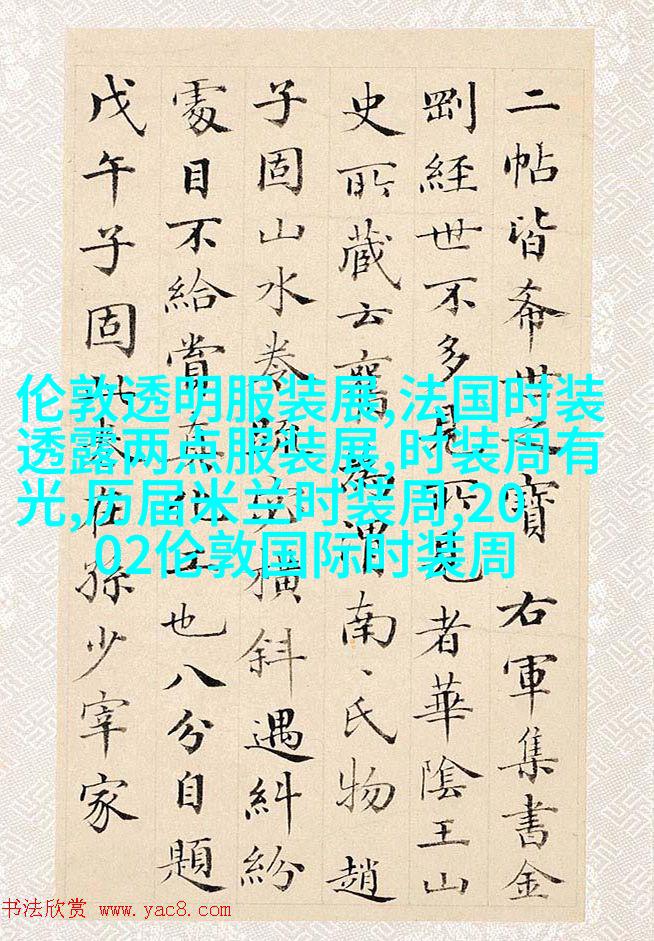 二帖皆希世之寶 右軍集書金
剛經世不多見所見者華陰王山
史所藏云 渭南丶氏物趙
子固山水卷疏 橫斜遇糾紛
處目不給賞真化工也八分自題
戊午子固 在孫少宰家
伦敦透明服装展,法国时装
透露两点服装展,时装周有
光,历届米兰时装周,20
02伦敦国际时装周
书法欣赏 www.yac8.com